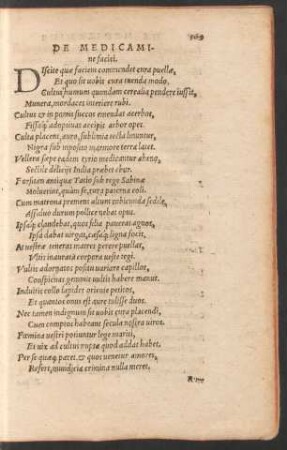 169
DE MEDICAMI
ne faciei.
DIscite quæ faciem commendet cura puellæ,
Et quo sit uobis cura tuenda modo.
Cultus humum quondam cerealia pendere iussit,
Munera, mordaces interiere rubi.
Cultus & in pomis succos emendat acerbos,
Fissaq; adoptiuas accipit arbor opes.
Culta placent, auro, sublimia tecta linuntur,
Nigra sub imposito marmore terra latet.
Vellera sæpe eadem tyrio medicantur aheno,
Sectile delicijs India præbet ebur.
Forsitan antiquæ Tatio sub rege Sabinæ
Maluerint, quàm se, rura paterna coli.
Cum matrona premens altum rubicunda sedile,
Assiduo durum pollice nebat opus.
Ipsaq; claudebat, quos filia pauerat agnos,
Ipsa dabat uirgas, cæsaq; ligna foco.
At uestræ teneras matres perere puellas,
Vultis inaurata corpora ueste tegi.
Vultis odoratos positu uariare capillos,
Conspicuas gemmis uultis habere manus.
Induitis collo lapides oriente petitos,
Et quantos onus est aure tulisse duos.
Nec tamen indignum sit uobis cura placendi,
Cum comptos habeant secula nostra uiros.
Fœmina uestri potiuntur lege mariti,
Et uix ad cultus nuptæ quod addat habet.
Per se quæq; paret, & quos uenetur amores,
Refert, mundicia crimina nulla meret.